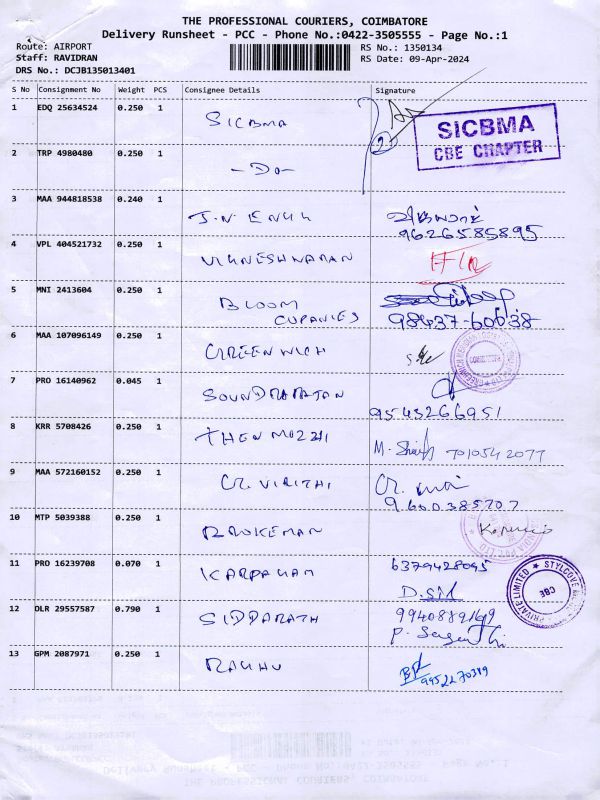 THE PROFESSIONAL COURIERS, COIMBATORE
Delivery Runsheet - PCC - Phone No.:0422-3505555 - Page No.:1
Route: AIRPORT
Staff: RAVIDRAN
DRS No.: DCJB135013401
RS No.: 1350134
RS Date: 09-Apr-2024
S No Consignment No Weight PCS Consignee Details Signature
1 EDQ 25634524 0.250 1 SICBMA
SICBMA
CBE CHAPTER
2 TRP 4980480 0.250 1 -DO-
3 MAA 944818538 0.240 1 J.N ENGG
9626585895
4 VPL 404521732 0.250 1 VIGNESHWARAN
5 MNI 2413604 0.250 1 BLOOM
98437-60638
6 MAA 107096149 0.250 1 GREENWICH
7 PRO 16140962 0.045 1 SOUNDRARAJAN
9543266951
8 KRR 5708426 0.250 1 THENMOZHI
M. 7010542077
9 MAA 572160152 0.250 1 G. VIRITHI
9600385707
10 MTP 5039388 0.250 1 BROKEMAN
11 PRO 16239708 0.070 1 KARPAGAM
6379428095
12 OLR 29557587 0.790 1 SIDDARATH
PRIVATE LIMITED ★ STYLCOVE
CBE
13 GPM 2087971 0.250 1 RAGHU